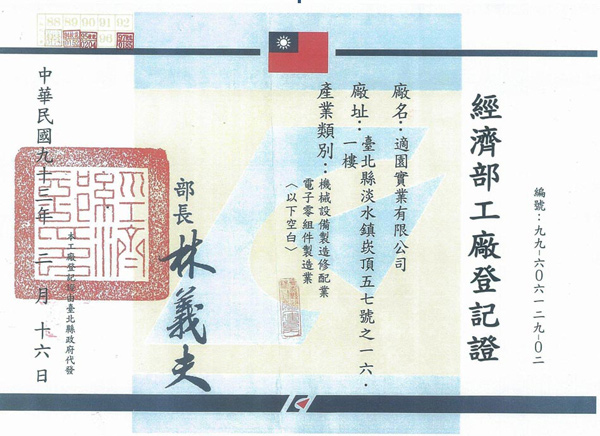 編號：九九-六０六一二九-０二
經濟部工廠登記證
廠名：適園實業有限公司
廠址：臺北縣淡水鎮崁頂五七號之一六．
一樓
產業類別：機械設備製造修配業
電子零組件製造業
（以下空白）
部長 林義夫
本工廠登記證由臺北縣政府代發
中華民國九十三年 三月 十六日
88 89 90 91 92